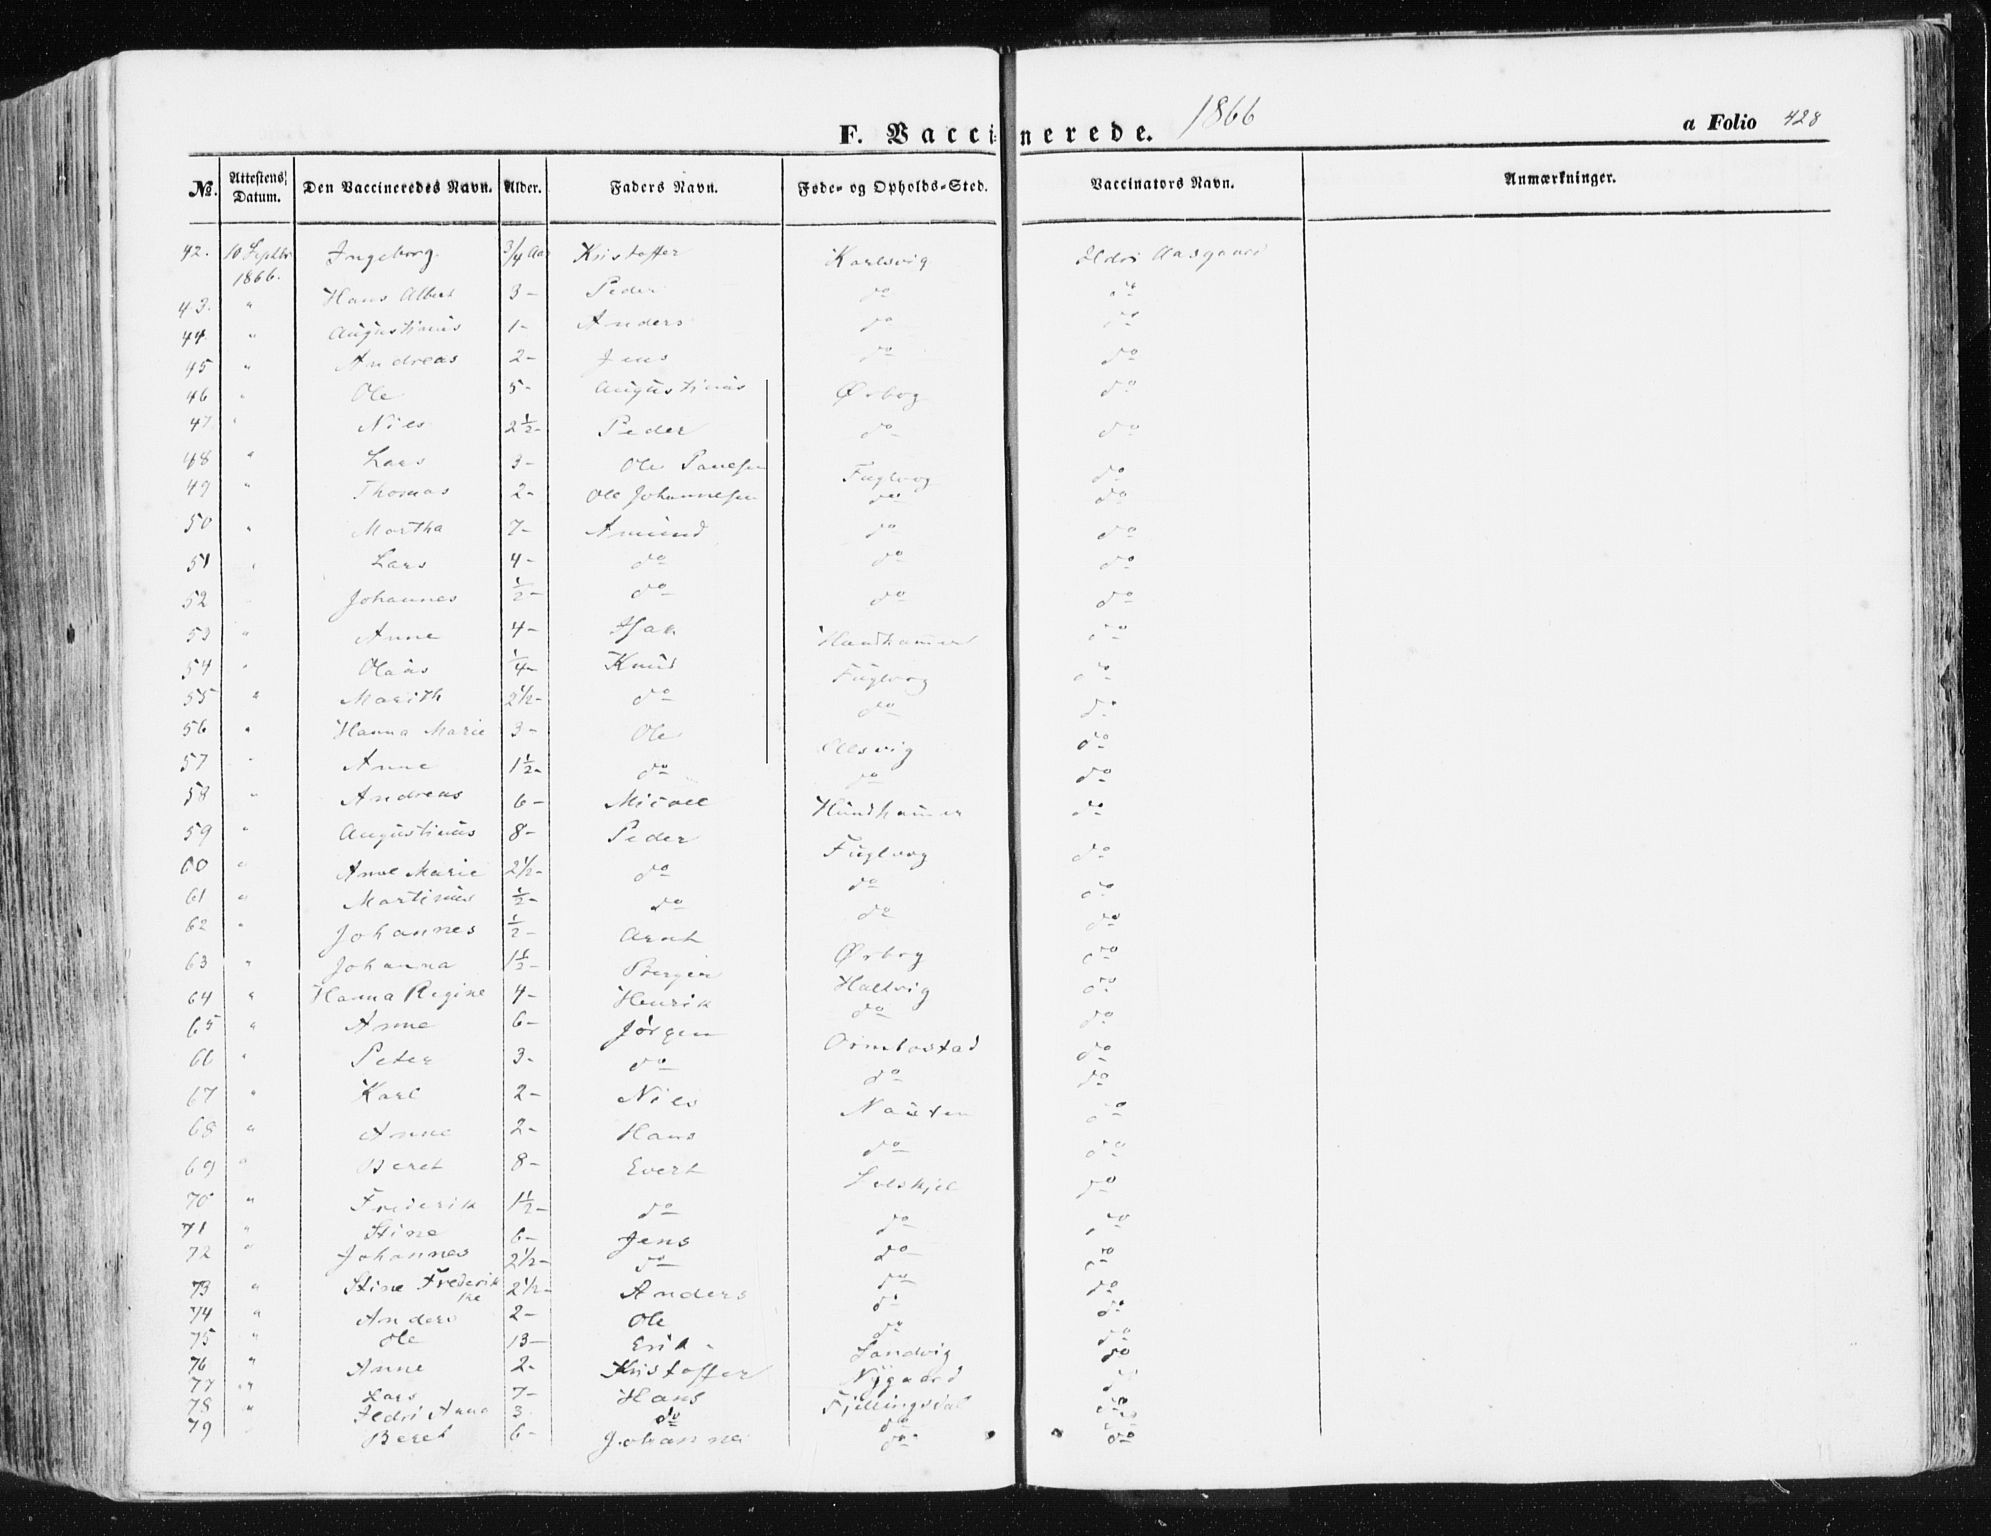 F. Vaccinerede. 1866 a Folio 428
No. Attestens Datum. Den Vaccineredes Navn. Alder. Faders Navn. Føde- og Opholds-Sted. Vaccinators Navn. Anmærkninger.
42. 10 Septbr 1866. Ingeborg 3/4 Aar Kristoffer Karlsvig Ildri Aasgaard
43. " Hans Albert 3- Peder do do
44 " Augustinus 1- Anders do do
45 " Andreas 2- Jens do do
46 " Ole 5- Augustinus Ørbog do
47 " Nils 2½- Peder do do
48 " Lars 3- Ole Fuglvog do
49 " Thomas 2- Ole Johannesen do do
50 " Martha 7- Amund do do
51 " Lars 4- do do do
52 Johannes ½- do do do
53 " Anne 4- Isak Hundhammer do
54 " Olaus ¼- Knud Fuglvog do
55 " Marith 2½- do do do
56 " Hanna Marie 3- Ole do
57 " Anne 1½- do do do
58 " Andreas 6- Micael Hundhammer do
59 " Augustinus 8- Peder Fuglvog do
60 " Anne Marie 2½- do do do
61 " Martinus ½- do do do
62 " Johannes ½- Arnt Ørbog do
63 " Johanna 1½- Haltvig do
64 " Hanna Regine 4- Henrik do do
65 " Anne 6- Jørgen do
66 " Peter 3- do do do
67 " Karl 2- Nils Nausten do
68 " Anne 2- Hans do do
69 " Beret 8- Evert do
70 " Frederik 1½- do do do
71 " Stine 6- Jens do do
72 " Johannes 2½- do do do
73 " Stine Frederikke 2½- Anders do do
74 " Anders 2- Ole do do
75 " Ole 13- Erik Sandvig do
76 " Anne 2- Kristoffer Nygaard do
77 " Lars 7- Hans do
78 " Ildri Anna 3. do do do
79 Beret 6- Johannes do do